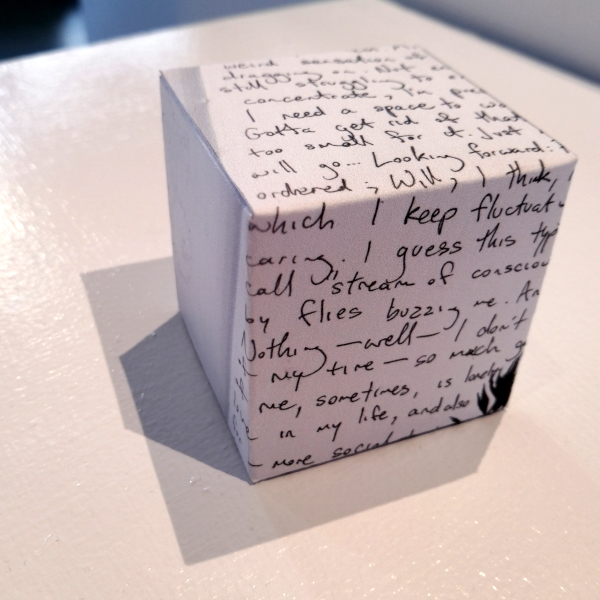 weird sensation of
dragging on. Not
still struggling to
concentrate, I'm
I need a space to wo
Gotta get rid of that
too small for it. Just
will go... Looking forward:
orchered; Will, I think,
which I keep fluctuat
caring. I guess this typ
call "stream of consciou
by flies buzzing me. An
Nothing —well— I don't
my time — so much g
me, sometimes, is lonely
in my life, and also
more social